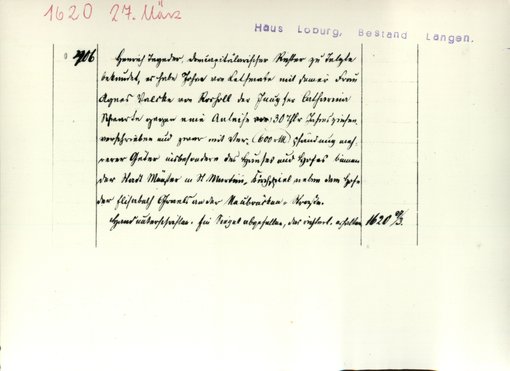 1620 27. März
Haus Loburg, Bestand Langen.
906 Henrich Tegeder, domcapitularischer Richter zu Telgte
bekundet, es habe Johan von Letmate mit seiner Frau
Agnes Valcke von Rockell der Jungfer Catharina
gegen eine Anleihe von 30 Thlr. Jahreszinsen
verschrieben und zwar mit Ver- (600 M) pfändung meh-
rerer Güter insbesondere des Hauses und Hofes binnen
der Stadt Münster in St. Martini Kirchspiel neben dem Hofe
der Elisabeth an der Neubrücken-Straße.
Handunterschriften. Ein Siegel abgefallen, das richterl. erhalten 1620 27/3.